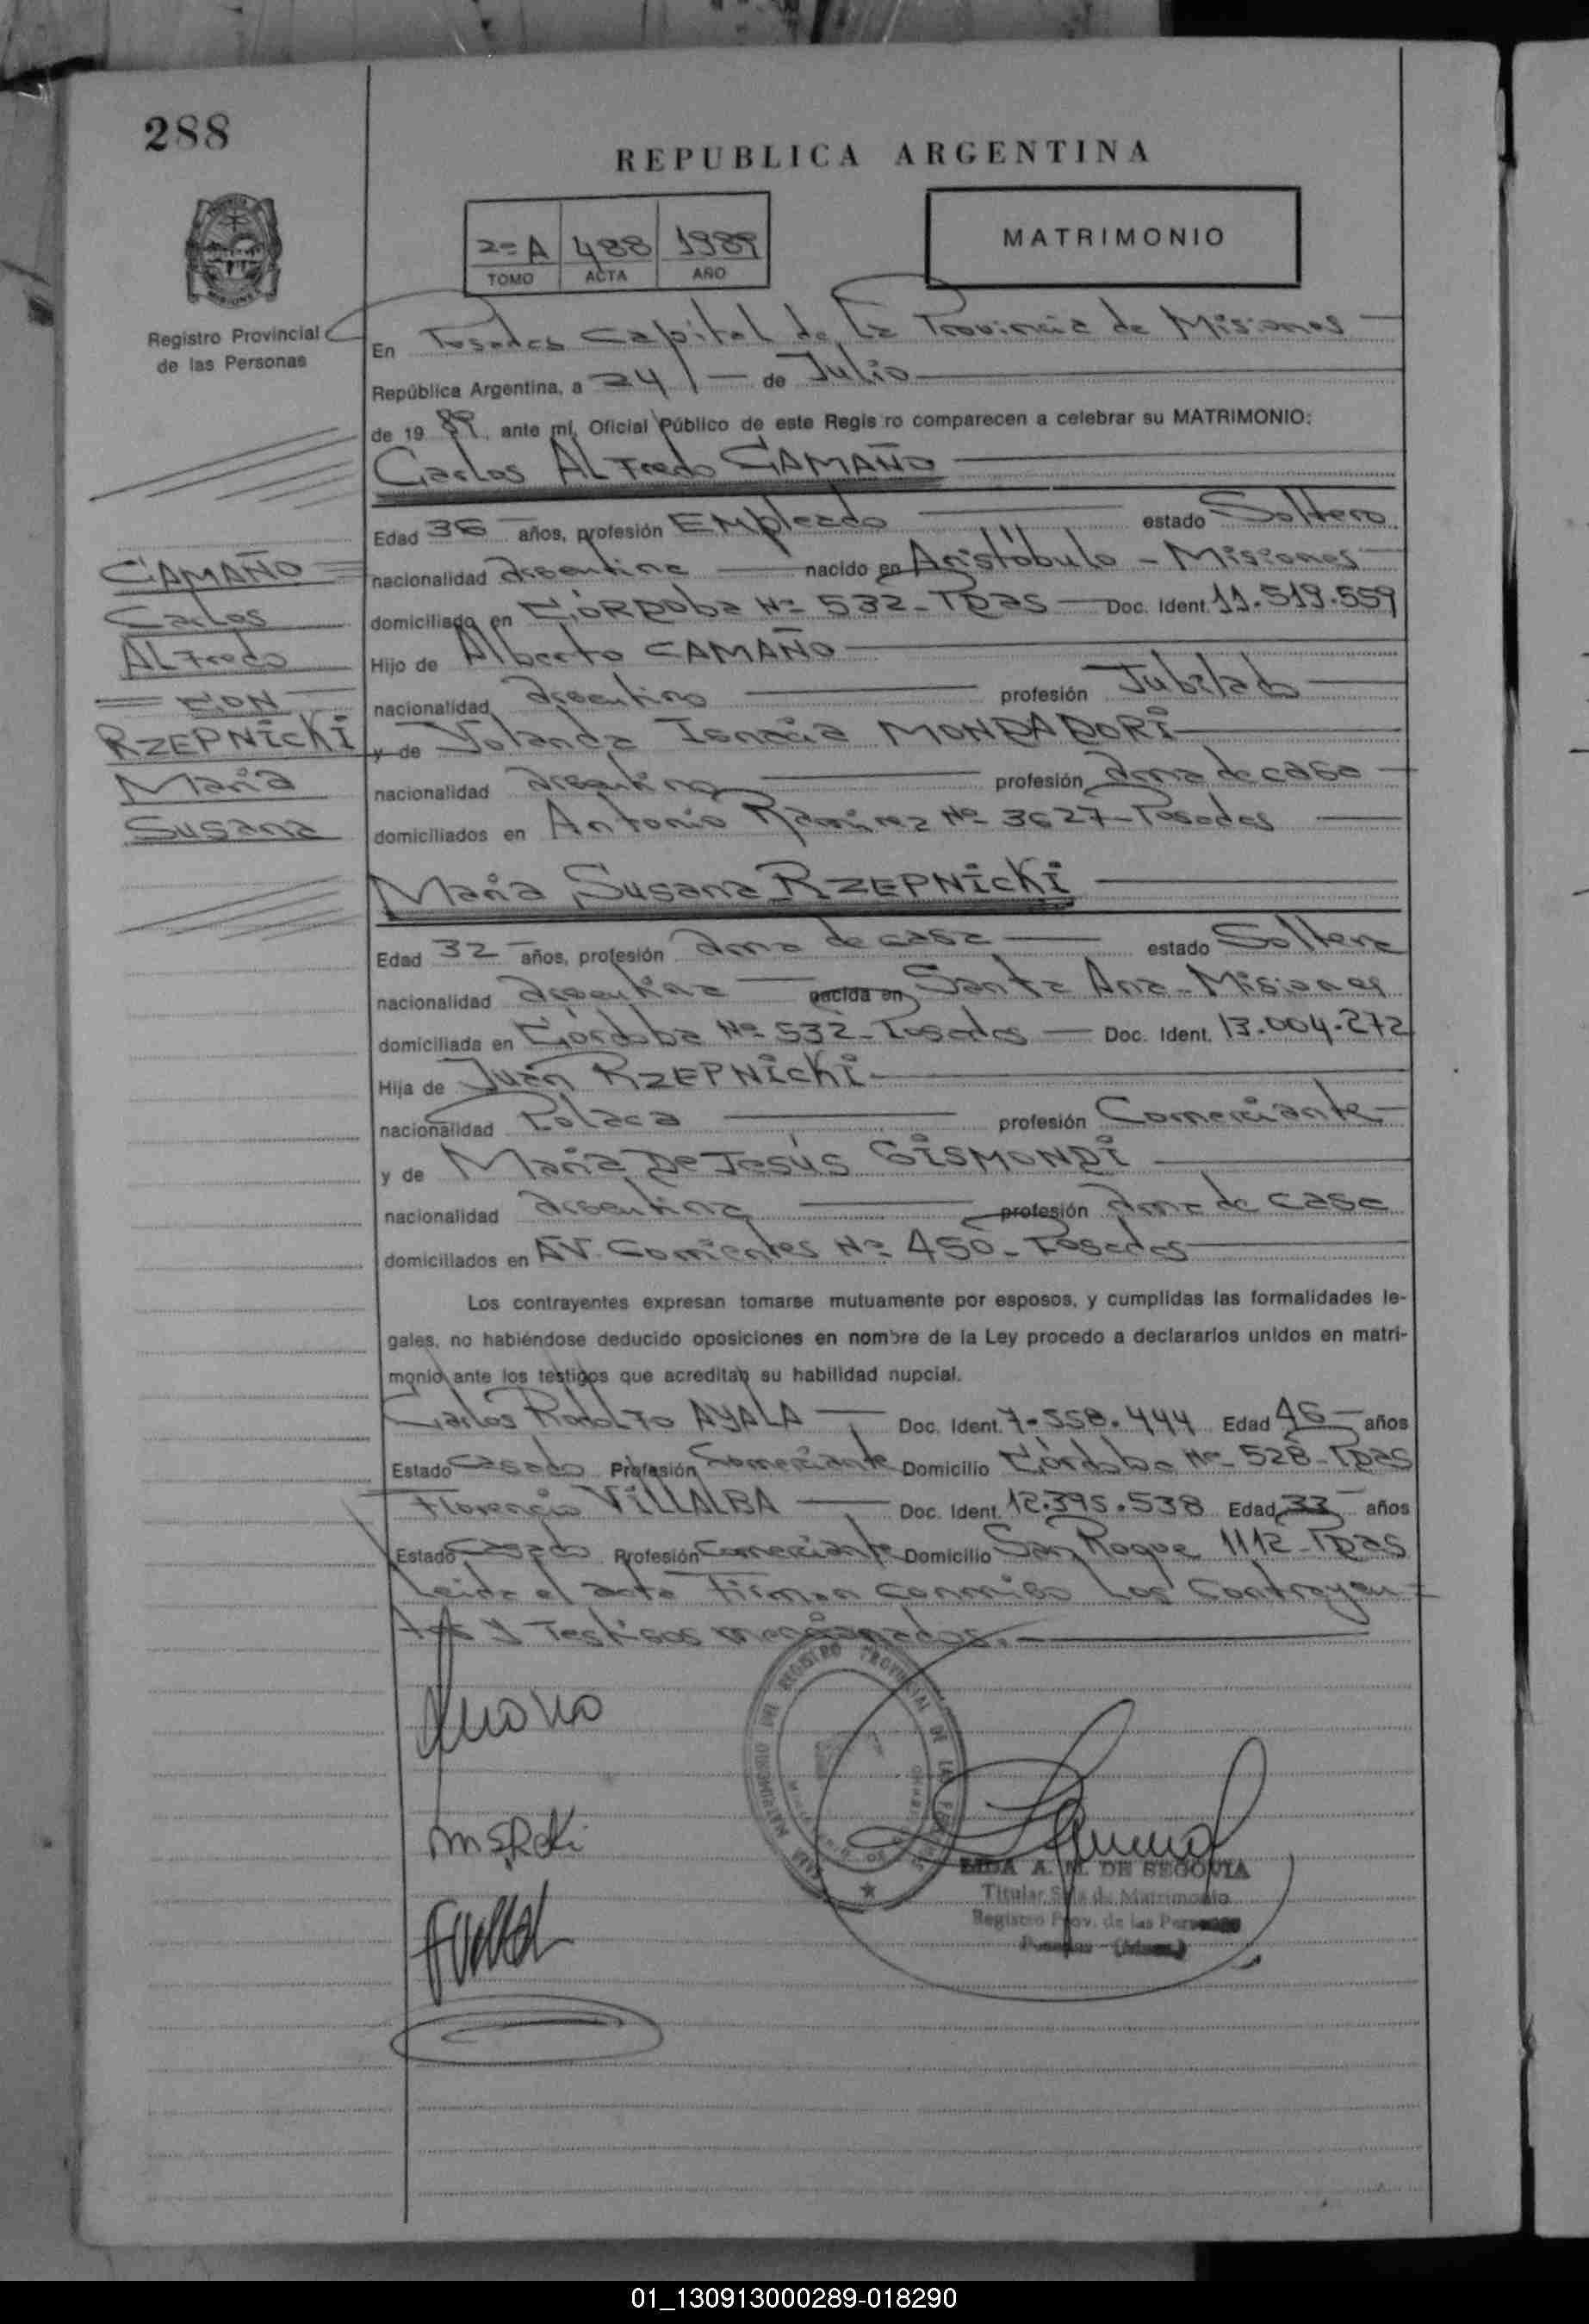 288
REPUBLICA ARGENTINA
2º A 488 1989
TOMO ACTA AÑO
MATRIMONIO
Registro Provincial
de las Personas
En Posadas Capital de la Provincia de Misiones
República Argentina, a 24 de Julio
de 1989, ante mí, Oficial Público de este Registro comparecen a celebrar su MATRIMONIO:
Carlos ALFredo CAMAÑO
Edad 36 años, profesión EMpleado estado Soltero
nacionalidad Argentina nacido en Aristóbulo - Misiones
domiciliado en CÓRDOBA Nº 532 - Pdas Doc. Ident. 11.519.559
Hijo de Alberto CAMAÑO
nacionalidad Argentino profesión Jubilado
y de Yolanda Ignacia MONDADORI
nacionalidad Argentina profesión Ama de casa
domiciliados en Antonio Ramirez Nº 3627 - Posadas
CAMAÑO
Carlos
ALFredo
= CON =
RZEPNICKI
María
Susana
María Susana RZEPNICKI
Edad 32 años, profesión Ama de casa estado Soltera
nacionalidad Argentina nacida en Santa Ana - Misiones
domiciliada en Córdoba Nº 532 - Posadas Doc. Ident. 13.004.272
Hija de Juan RZEPNICKI
nacionalidad Polaca profesión Comerciante
y de María De Jesús GISMONDI
nacionalidad Argentina profesión Ama de casa
domiciliados en AV. Corrientes Nº 450 - Posadas
Los contrayentes expresan tomarse mutuamente por esposos, y cumplidas las formalidades le-
gales, no habiéndose deducido oposiciones en nombre de la Ley procedo a declararlos unidos en matri-
monio ante los testigos que acreditan su habilidad nupcial.
Carlos Rodolfo AYALA Doc. Ident. 7.558.444 Edad 46 años
Estado Casado Profesión Comerciante Domicilio Córdoba Nº 528 - Pdas
Florencio VILLALBA Doc. Ident. 12.395.538 Edad 33 años
Estado Casado Profesión Comerciante Domicilio San Roque 1112 - Pdas
Leida el acta Firman conmigo los contrayen=
tes y Testigos mencionados.
LIDA A. M. DE SEGOVIA
Titular Sala de Matrimonio
Registro Prov. de las Personas
Posadas - (Mnes.)
01_130913000289-018290